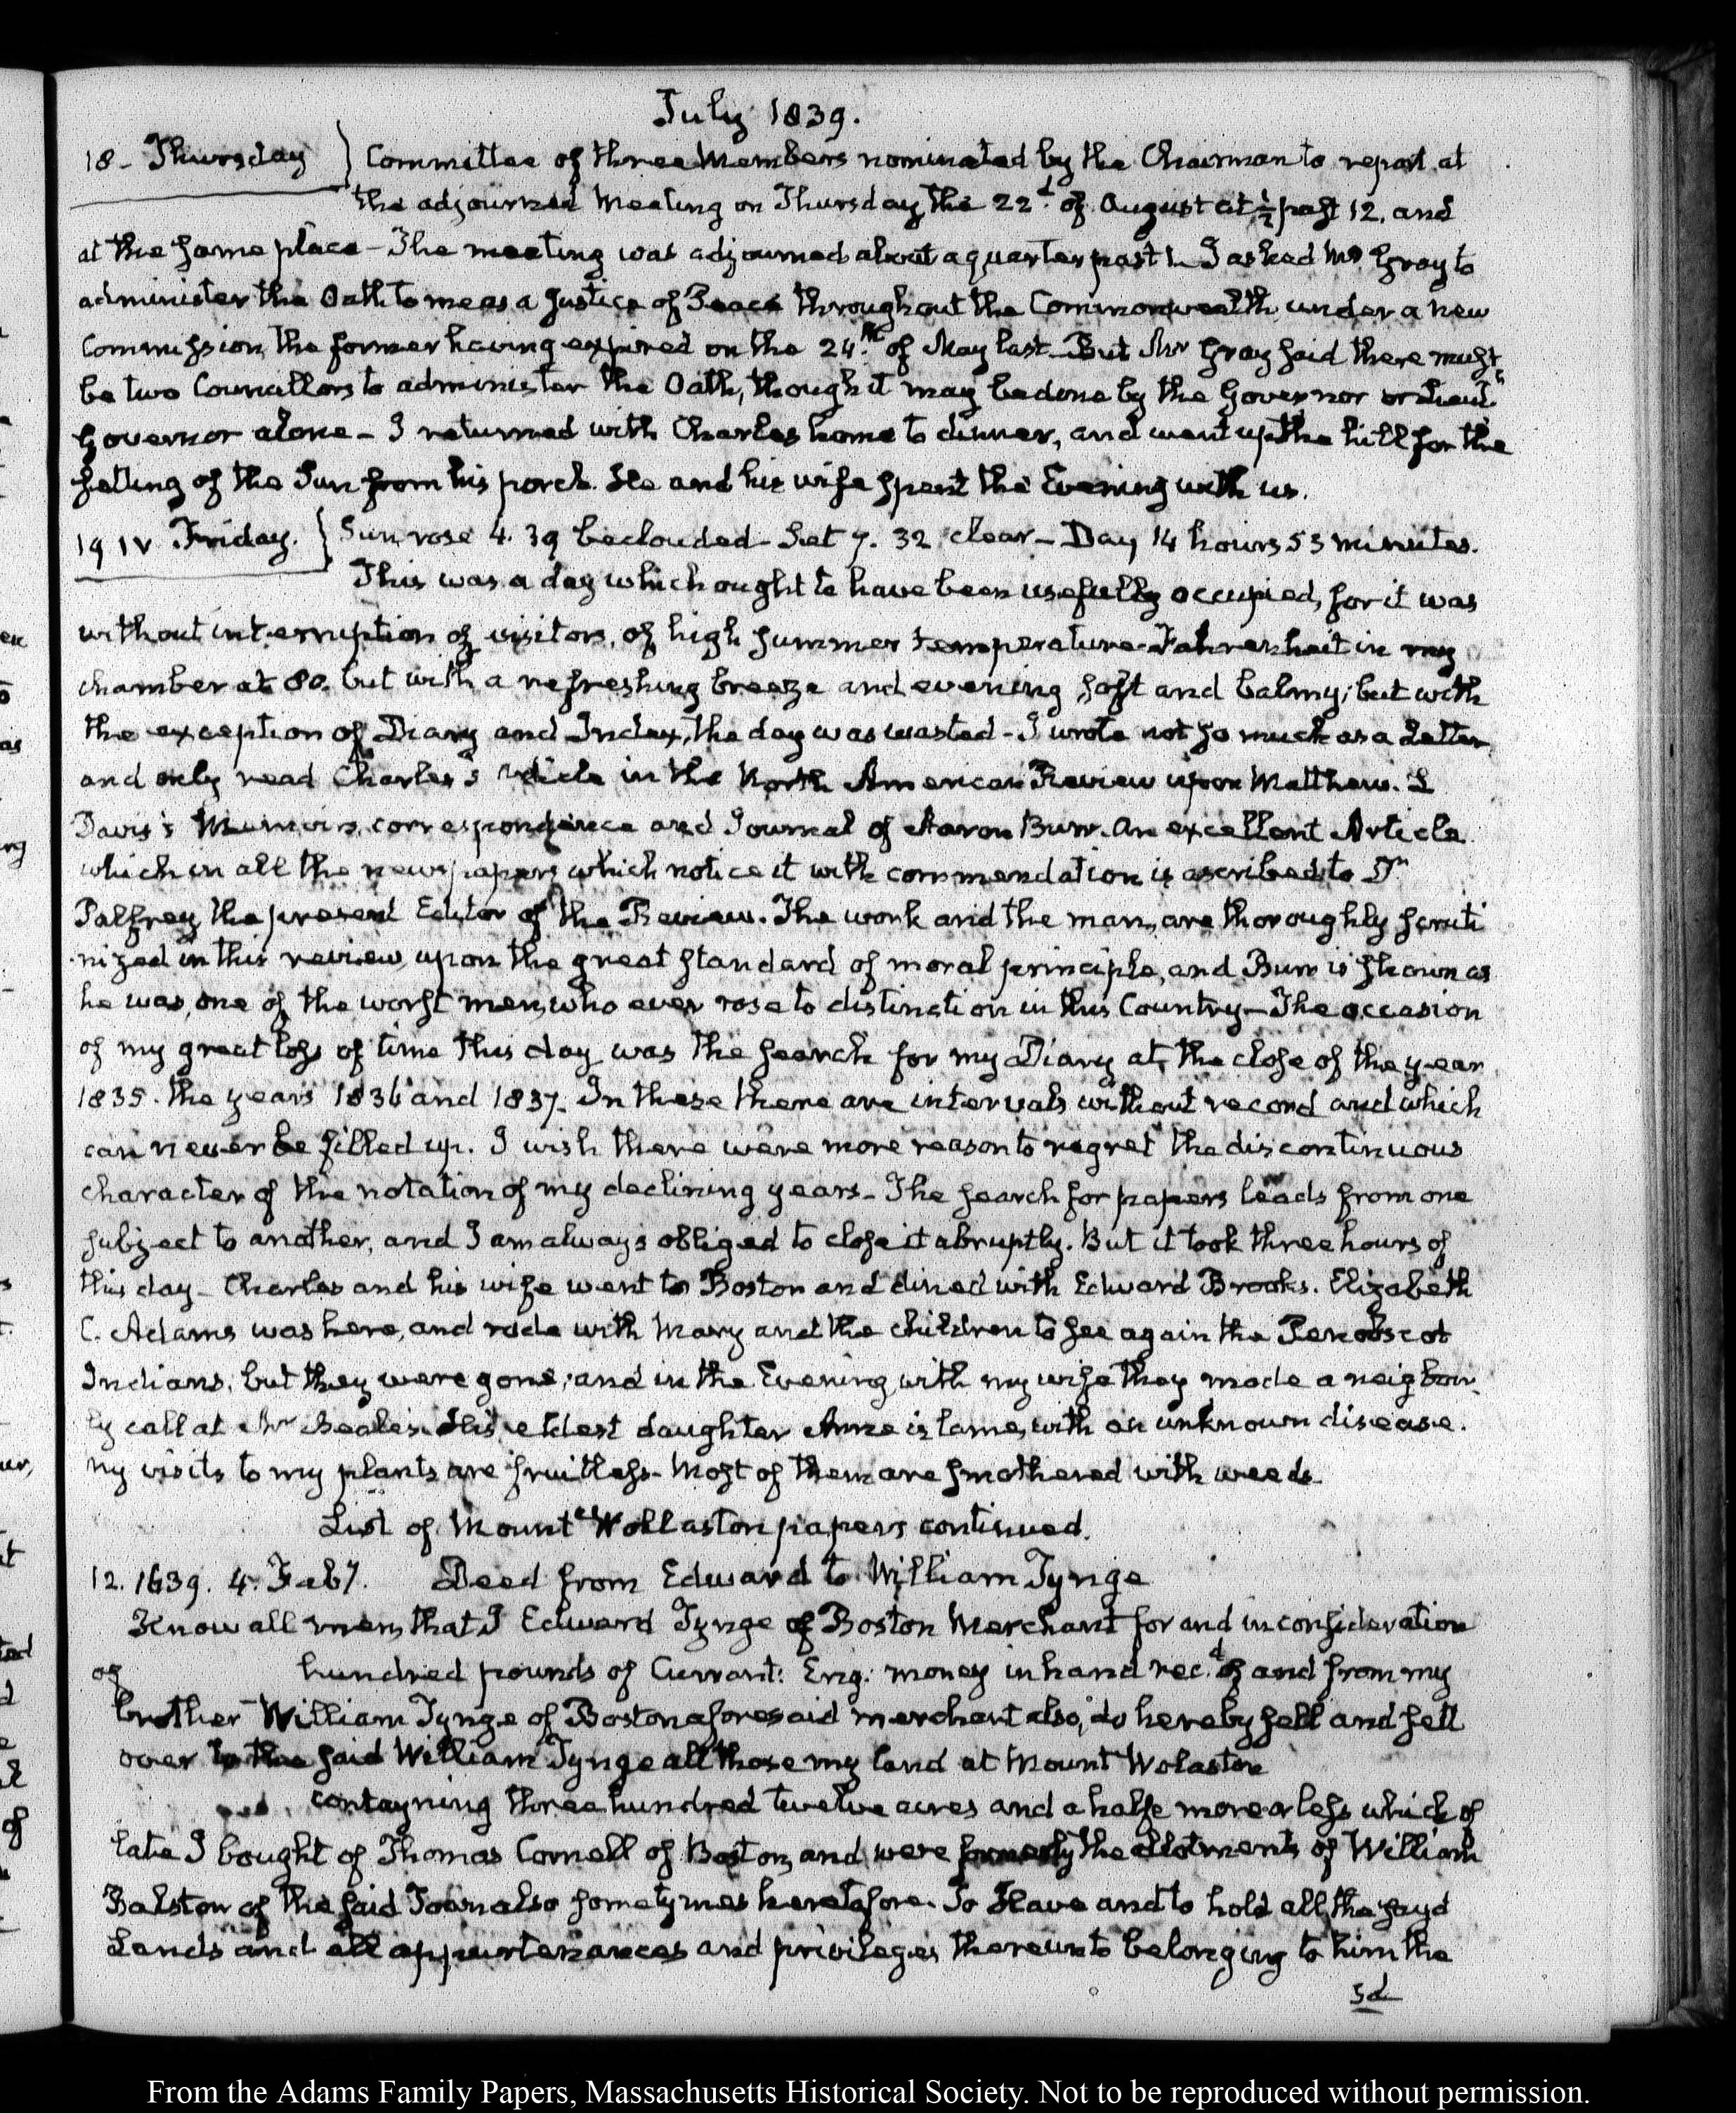 July 1839.
18- Thursday } Committee of three Members nominated by the Chairman to report at
the adjourned Meeting on Thursday the 22d. of August at ½ past 12, and
at the same place - The meeting was adjourned about a quarter past 1. I asked Mr Gray to
administer the Oath to me as a Justice of Peace throughout the Commonwealth, under a new
Commission, the former having expired on the 24th. of May last - But Mr Gray said there must
be two Councillors to administer the Oath, though it may be done by the Governor or Lieutt
Governor alone - I returned with Charles home to dinner, and went up the hill for the
setting of the Sun from his porch. He and his wife spent the Evening with us.
19 IV. Friday. } Sun rose 4. 39 beclouded - Set 7. 32 clear - Day 14 hours 53 minutes.
This was a day which ought to have been usefully occupied, for it was
without interruption of visitors, of high summer temperature - Fahrenheit in my
chamber at 80. but with a refreshing breeze and evening soft and balmy; but with
the exception of Diary and Index, the day was wasted - I wrote not so much as a Letter
and only read Charles's Article in the North American Review upon Matthew. L
Davis's Memoirs, correspondence and Journal of Aaron Burr. An excellent Article
which in all the newspapers which notice it with commendation is ascribed to Dr
Palfrey the present Editor of the Review. The work and the man, are thoroughly scruti
nized in this review, upon the great standard of moral principle, and Burr is shown as
he was, one of the worst men, who ever rose to distinction in this Country - The occasion
of my great loss of time this day was the search for my Diary at, the close of the year
1835. the years 1836 and 1837. In these there are intervals without record and which
can never be filled up. I wish there were more reason to regret the discontinuous
character of the notation of my declining years - The search for papers leads from one
subject to another, and I am always obliged to close it abruptly. But it took three hours of
this day - Charles and his wife went to Boston and dined with Edward Brooks. Elizabeth
C. Adams was here, and rode with Mary and the children to see again the Penobscot
Indians, but they were gone; and in the Evening with my wife they made a neighbour
ly call at Mr Beale's. His eldest daughter Anne is lame, with an unknown disease.
my visits to my plants are fruitless - Most of them are smothered with weeds
List of Mount Wollaston papers continued.
12. 1639. 4. Feby. Deed from Edward to William Tynge
Know all men, that I Edward Tynge of Boston Merchant for and in consideration
of hundred pounds of Currant: Eng: money in hand recd. of and from my
brother William Tynge of Boston aforesaid merchant also, do hereby sell and sell
over to the said William Tynge all those my land at Mount Wolaston
contayning three hundred twelve acres and a halfe more or less which of
late I bought of Thomas Cornell of Boston, and were formerly the allotments of William
Balston of the said Town also sometymes heretofore. To Have and to hold all the sayd
Lands and all appurtenances and privileges thereunto belonging to him the
sd
From the Adams Family Papers, Massachusetts Historical Society. Not to be reproduced without permission.